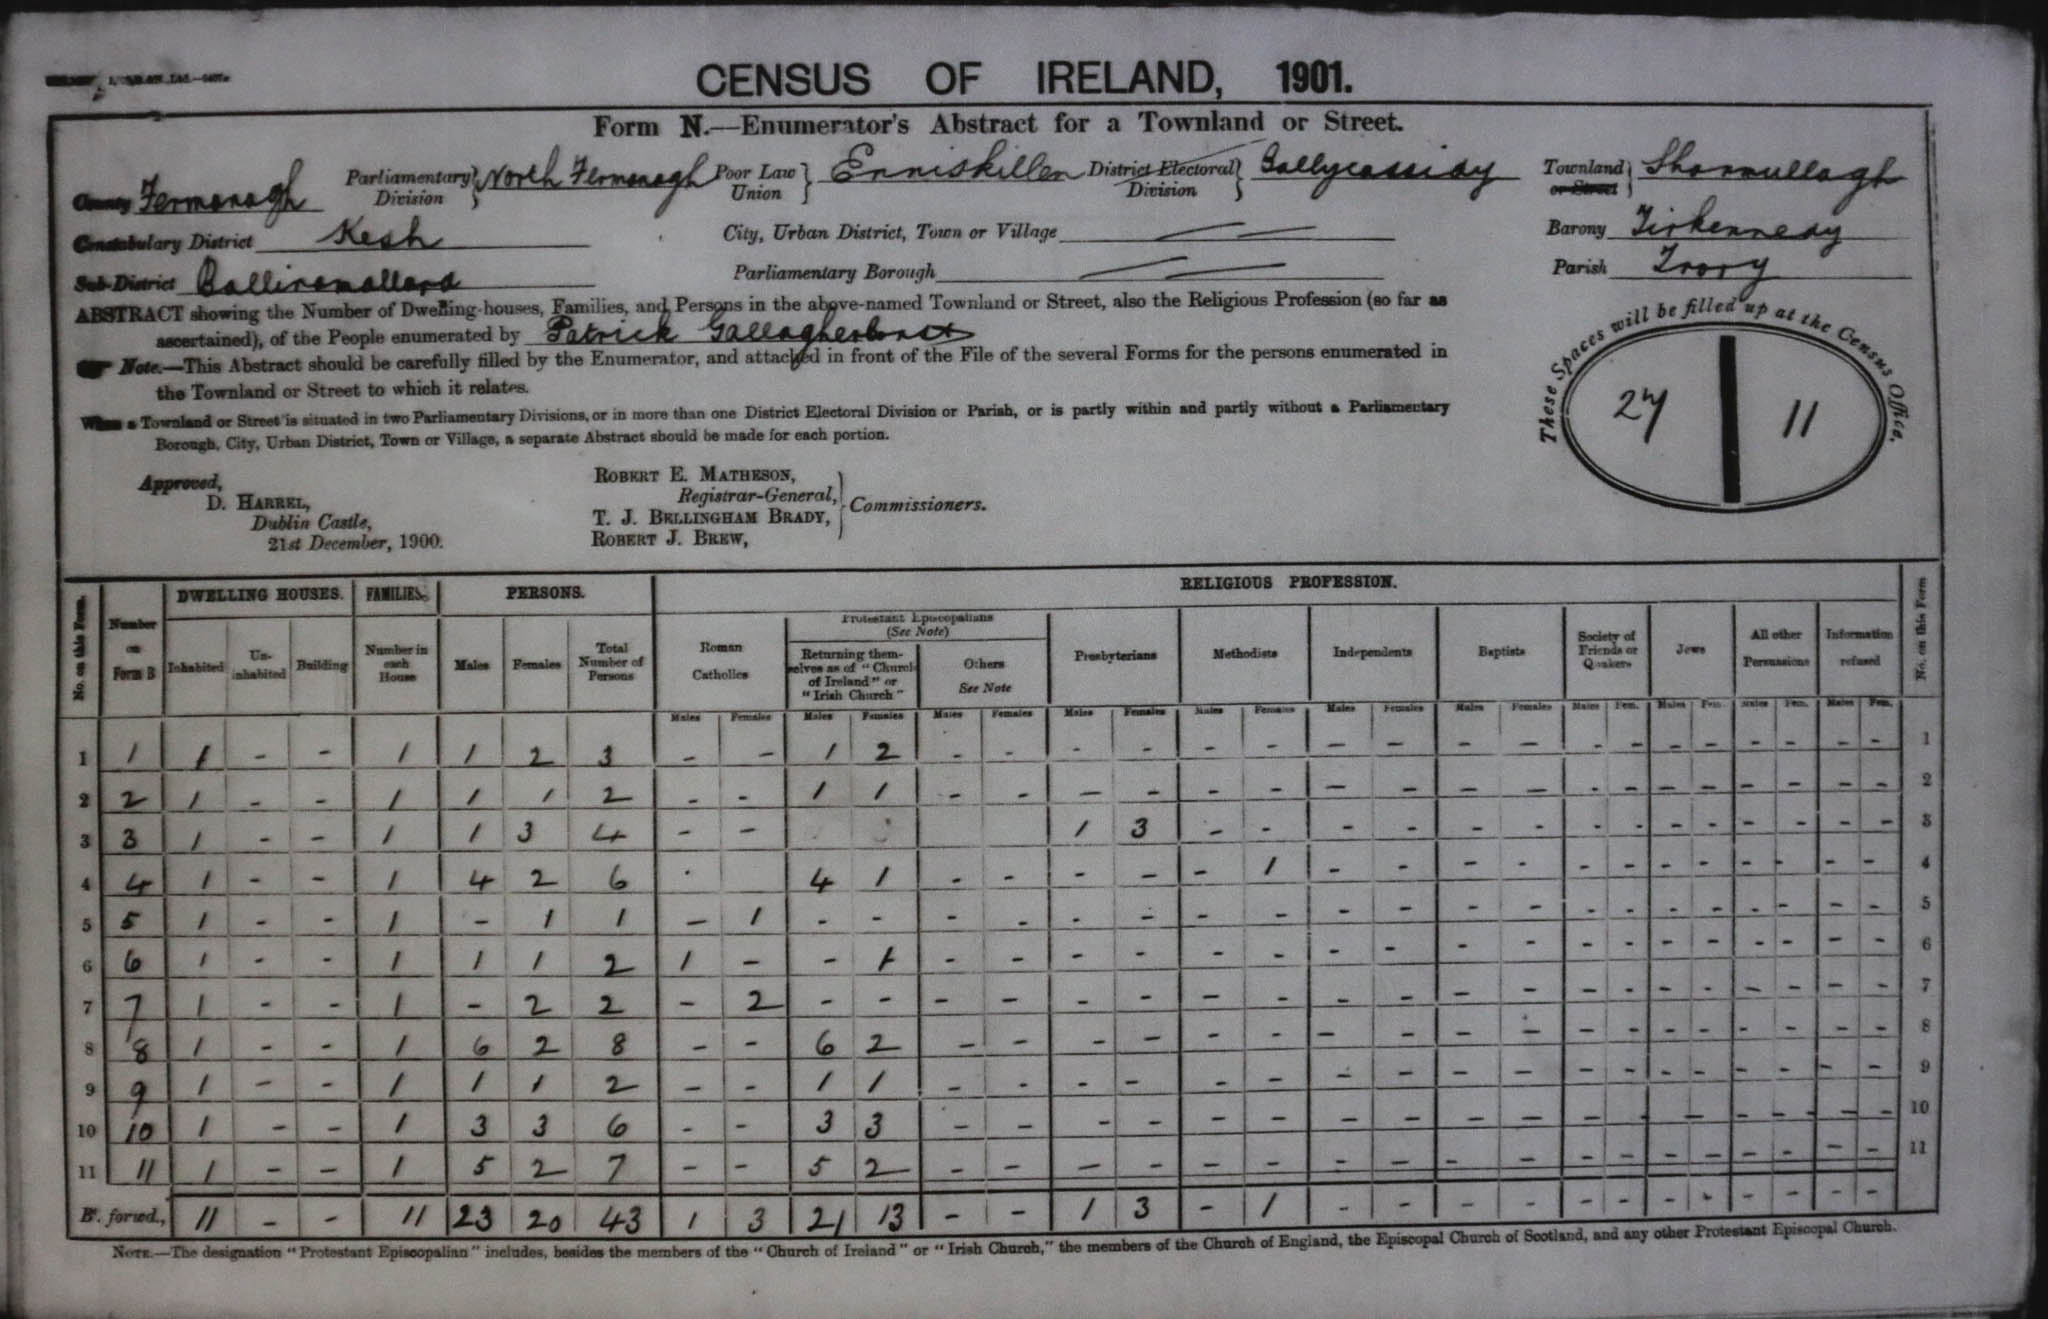 CENSUS OF IRELAND, 1901.
Form N.—Enumerator's Abstract for a Townland or Street.
County Fermanagh Parliamentary Division } North Fermanagh Poor Law Union } Enniskillen District Electoral Division } Ballycassidy Townland or Street } Shanmullagh
Constabulary District Kesh City, Urban District, Town or Village — — Barony Tirkennedy
Sub-District Ballinamallard Parliamentary Borough — — Parish Trory
ABSTRACT showing the Number of Dwelling-houses, Families, and Persons in the above-named Townland or Street, also the Religious Profession (so far as
ascertained), of the People enumerated by Patrick Gallagher Const
Note.—This Abstract should be carefully filled by the Enumerator, and attached in front of the File of the several Forms for the persons enumerated in
the Townland or Street to which it relates.
When a Townland or Street is situated in two Parliamentary Divisions, or in more than one District Electoral Division or Parish, or is partly within and partly without a Parliamentary
Borough, City, Urban District, Town or Village, a separate Abstract should be made for each portion.
These Spaces will be filled up at the Census Office.
27 11
Approved,
D. HARREL,
Dublin Castle,
21st December, 1900.
ROBERT E. MATHESON,
Registrar-General,
T. J. BELLINGHAM BRADY,
ROBERT J. BREW,
} Commissioners.
No. on this Form. Number on Form B DWELLING HOUSES. FAMILIES. PERSONS. RELIGIOUS PROFESSION. No. on this Form
Inhabited Un-inhabited Building Number in each House Males Females Total Number of Persons Roman Catholics Protestant Episcopalians (See Note) Returning themselves as of "Church of Ireland" or "Irish Church" Others See Note Presbyterians Methodists Independents Baptists Society of Friends or Quakers Jews All other Persuasions Information refused
Males Females Males Females Males Females Males Females Males Females Males Females Males Females Males Fem. Males Fem. Males Fem. Males Fem.
1 1 1 - - 1 1 2 3 - - 1 2 - - - - - - - - - - - - - - - - - - 1
2 2 1 - - 1 1 1 2 - - 1 1 - - - - - - - - - - - - - - - - - - 2
3 3 1 - - 1 1 3 4 - - 1 3 - - - - - - - - - - - - - - 3
4 4 1 - - 1 4 2 6 4 1 - - - - - 1 - - - - - - - - - - - - 4
5 5 1 - - 1 - 1 1 - 1 - - - - - - - - - - - - - - - - - - - - 5
6 6 1 - - 1 1 1 2 1 - - 1 - - - - - - - - - - - - - - - - - - 6
7 7 1 - - 1 - 2 2 - 2 - - - - - - - - - - - - - - - - - - - - 7
8 8 1 - - 1 6 2 8 - - 6 2 - - - - - - - - - - - - - - - - - - 8
9 9 1 - - 1 1 1 2 - - 1 1 - - - - - - - - - - - - - - - - - - 9
10 10 1 - - 1 3 3 6 - - 3 3 - - - - - - - - - - - - - - - - - - 10
11 11 1 - - 1 5 2 7 - - 5 2 - - - - - - - - - - - - - - - - - - 11
Bt. forwd., 11 - - 11 23 20 43 1 3 21 13 - - 1 3 - 1 - - - - - - - - - - - -
NOTE.—The designation "Protestant Episcopalian" includes, besides the members of the "Church of Ireland" or "Irish Church," the members of the Church of England, the Episcopal Church of Scotland, and any other Protestant Episcopal Church.